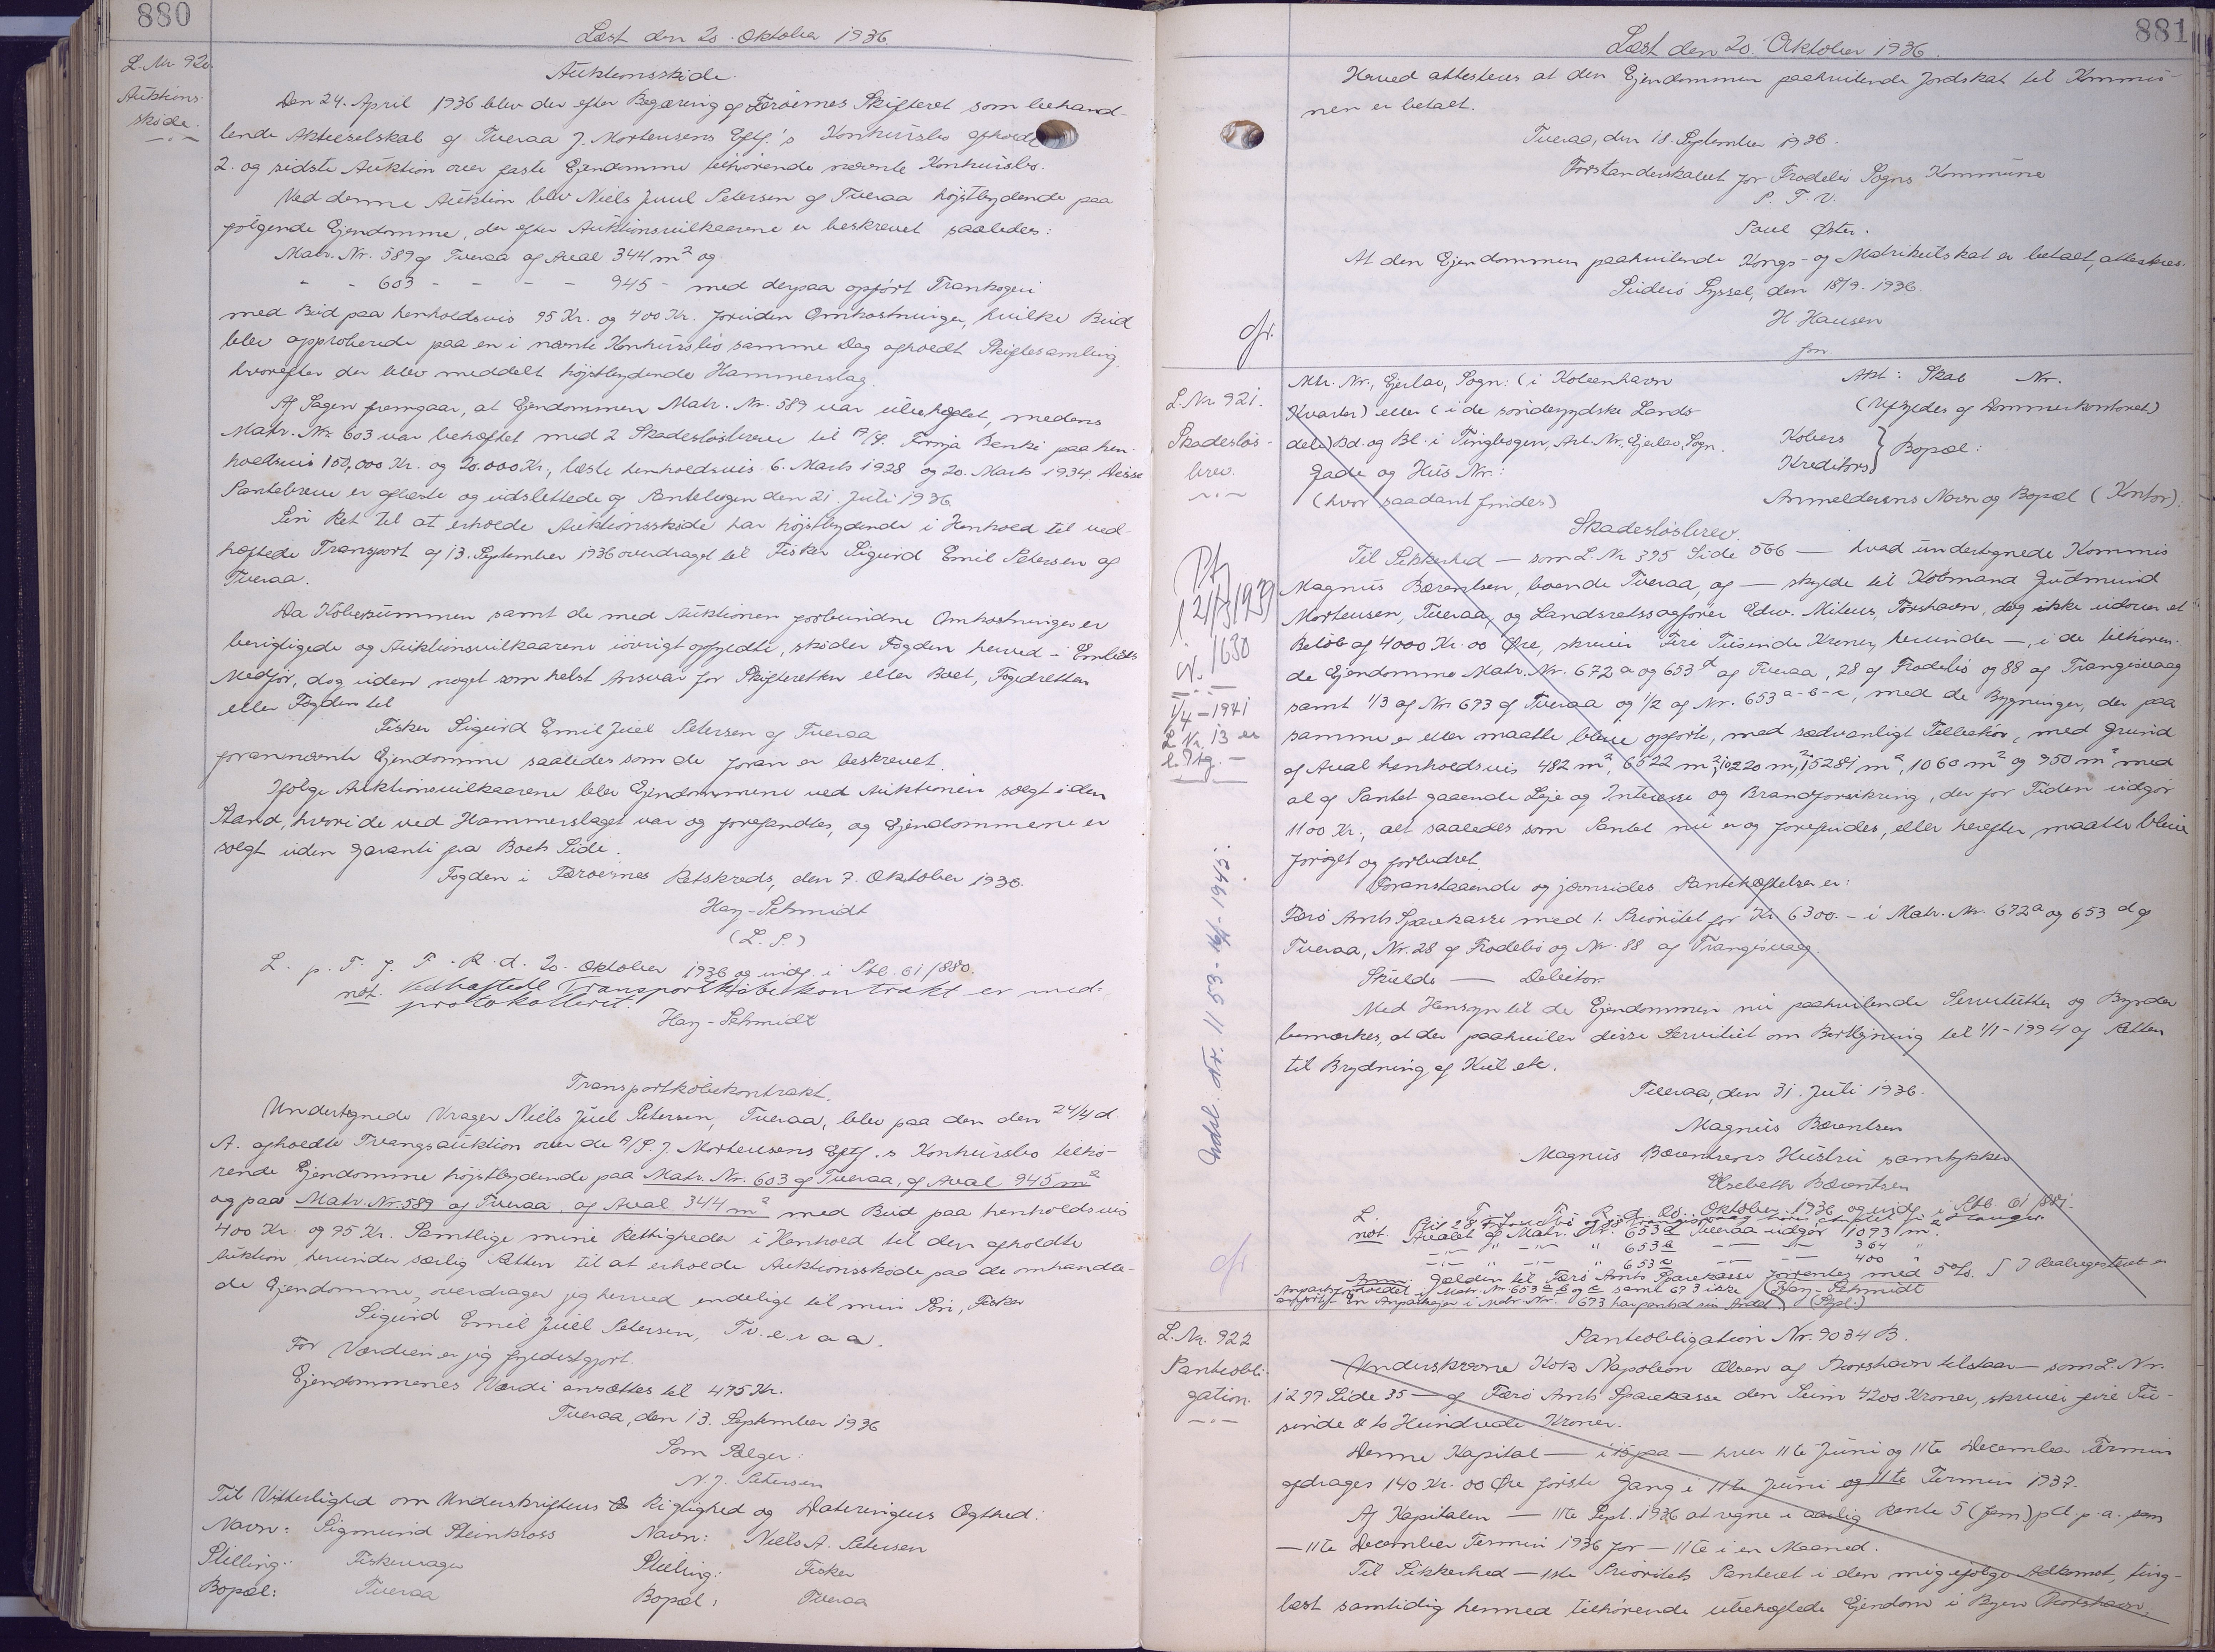 880
Læst den 20. Oktober 1936.
L. Nr 920.
Auktions-
skøde.
Auktionsskøde.
Den 24. April 1936 blev der efter Begæring af Færøernes Skifteret som behand-
lende Aktieselskab af Tveraa J. Mortensens Eftf.'s Konkursbo afholdt
2. og sidste Auktion over faste Ejendomme tilhørende nævnte Konkursbo.
Ved denne Auktion blev Niels Juul Petersen af Tveraa højstbydende paa
følgende Ejendomme, der efter Auktionsvilkaarene er beskrevet saaledes:
Matr. Nr. 589 af Tveraa af Areal 344 m² og
- - 603 - - - - 945 - med derpaa opført Trankogeri
med Bud paa henholdsvis 95 Kr. og 400 Kr. foruden Omkostninger, hvilke Bud
blev approberede paa en i nævnte Konkursbo samme Dag afholdt Skiftesamling,
hvorefter der blev meddelt højstbydende Hammerslag.
Af Sagen fremgaar, at Ejendommen Matr. Nr. 589 var ubehæftet, medens
Matr. Nr. 603 var behæftet med 2 Skadesløsbreve til A/S. Føroya Banki paa hen-
holdsvis 150,000 Kr. og 20.000 Kr., læste henholdsvis 6. Marts 1928 og 20. Marts 1934. Disse
Pantebreve er aflæste og udslettede af Pantebogen den 21. Juli 1936.
Sin Ret til at erholde Auktionsskøde har højstbydende i Henhold til ved-
hæftede Transport af 13. September 1936 overdraget til Fisker Sigurd Emil Petersen af
Tveraa.
Da Købesummen samt de med Auktionen forbundne Omkostninger er
berigtigede og Auktionsvilkaarene iøvrigt opfyldte, skøder Fogden herved i Embeds
Medfør, dog uden noget som helst Ansvar for Skifteretten eller Boet, Fogedretten
eller Fogden til
Fisker Sigurd Emil Juel Petersen af Tveraa
forannævnte Ejendomme saaledes som de foran er beskrevet.
Ifølge Auktionsvilkaarene blev Ejendommene ved Auktionen solgt i den
Stand, hvori de ved Hammerslaget var og forefandtes, og Ejendommene er
solgt uden Garanti fra Boets Side.
Fogden i Færøernes Retskreds, den 7. Oktober 1936.
Hay-Schmidt
(L. S.)
L. p. T. f. F. R. d. 20. Oktober 1936 og indf. i Stb. 61/880.
not. Vedhæftede Transportkøbekontrakt er med-
protokolleret.
Hay-Schmidt
Transportkøbekontrakt.
Undertegnede Vrager Niels Juel Petersen, Tveraa, blev paa den den 24/4 d.
A. afholdte Tvangsauktion over de A/S. J. Mortensens Eftf.s Konkursbo tilhø-
rende Ejendomme højstbydende paa Matr. Nr. 603 af Tveraa, af Areal 945 m²
og paa Matr. Nr. 589 af Tveraa, af Areal 344 m² med Bud paa henholdsvis
400 Kr. og 95 Kr. Samtlige mine Rettigheder i Henhold til den afholdte
Auktion, herunder særlig Retten til at erholde Auktionsskøde paa de omhandle-
de Ejendomme, overdrager jeg herved endeligt til min Søn, Fisker
Sigurd Emil Juel Petersen, Tveraa.
For Værdien er jeg fyldestgjort.
Ejendommenes Værdi ansættes til 495 Kr.
Tveraa, den 13. September 1936
Som Sælger:
N. J. Petersen
Til Vitterlighed om Underskriftens Rigtighed og Dateringens Ægthed:
Navn: Sigmund Steinkross Navn: Niels A. Petersen
Stilling: Fiskevrager Stilling: Fisker
Bopæl: Tveraa Bopæl: Tveraa
881
Læst den 20. Oktober 1936.
Herved attesteres at den Ejendommen paahvilende Jordskat til Kommu-
nen er betalt.
Tveraa, den 18. September 1936.
Forstanderskabet for Frodebø Sogns Kommune
P. F. V.
Poul Øster.
At den Ejendommen paahvilende Kongs- og Matrikulskat er betalt, attesteres.
Suderø Syssel, den 18/9. 1936.
H. Hansen
fm.
cfr.
L. Nr 921.
Skadesløs-
brev.
Mtr. Nr., Ejerlav, Sogn: (i København
Kvarter) eller (i de sønderjydske Lands-
dele) Bd. og Bl. i Tingbogen, Art. Nr., Ejerlav, Sogn.
Gade og Hus Nr.:
(hvor saadant findes)
Akt: Skab Nr.
(Udfyldes af Dommerkontoret)
Købers
Kreditors } Bopæl:
Anmelderens Navn og Bopæl (Kontor):
Skadesløsbrev.
Til Sikkerhed — som L. Nr 395 Side 566 — hvad undertegnede Kommis
Magnus Bærentsen, boende Tveraa, og — skylde til Købmand Gudmund
Mortensen, Tveraa, og Landsretssagfører Edw. Mitens, Tórshavn, dog ikke udover et
Beløb af 4000 Kr. 00 Øre, skriver Fire Tusinde Kroner, herunder —, i de tilhøren-
de Ejendomme Matr. Nr. 672 a og 653 d af Tveraa, 28 af Frodebø og 88 af Trangisvaag
samt 1/3 af Nr. 673 af Tveraa og 1/2 af Nr. 653 a-b-c, med de Bygninger, der paa
samme er eller maatte blive opførte, med sædvanligt Tilbehør, med Grund
af Areal henholdsvis 482 m², 6522 m², 10220 m², 15284 m², 1060 m² og 950 m² med
al af Pantet gaaende Leje og Interesse og Brandforsikring, der for Tiden udgør
1100 Kr., alt saaledes som Pantet nu er og forefindes, eller herefter maatte blive
forøget og forbedret.
Foranstaaende og jævnsides Pantehæftelser er:
Færø Amts Sparekasse med 1. Prioritet for Kr. 6300.- i Matr. Nr. 672 a og 653 d af
Tveraa, Nr. 28 af Frodebø og Nr. 88 af Trangisvaag.
Skulde — Debitor.
Med Hensyn til de Ejendommen nu paahvilende Servitutter og Byrder
bemærkes, at der paahviler disse Servitut om Bortlejning til 1/1-1994 af Retten
til Brydning af Kul etc.
Tveraa, den 31. Juli 1936.
Magnus Bærentsen
Magnus Bærentsens Hustru samtykker
Elsebeth Bærentsen
L. p. T. f. F. R. d. 20. Oktober 1936 og indf. i Stb. 61/881.
not. Arealet af Matr. Nr. 653 a Tveraa udgør 1093 m².
-"- " -"- " 653 b -"- -"- 364 "
-"- " -"- " 653 c -"- -"- 400 "
Anm: Gælden til Færø Amts Sparekasse forrentes med 5%. I Realregisteret er
i Matr. Nr. 653 a b og c samt 673 ikke Hay-Schmidt
En Anpartsejer i Matr. Nr. 673 har pantsat sin Andel.
1/4-1941
L. Nr. 13 er
Indsl. Nr. 1153
L. Nr. 922
Panteobli-
gation.
Panteobligation Nr. 9034 B.
Underskrevne Kok Napoleon Olsen af Thorshavn tilstaar — som L. Nr.
1277 Side 35 — af Færø Amts Sparekasse den Sum 4200 Kroner, skriver fire Tu-
sinde & to Hundrede Kroner.
Denne Kapital — — hver 11te Juni og 11te December Termin
afdrages 140 Kr. 00 Øre første Gang i 11te Juni og 11te Termin 1937.
Af Kapitalen — 11te Sept. 1936 at regne i aarlig Rente 5 (fem) pCt. p. a. som
— 11te December Termin 1936 for — 11te i en Maaned.
Til Sikkerhed — 1ste Prioritets Panteret i den mig ifølge Adkomst, ting-
læst samtidig hermed tilhørende ubehæftede Ejendom i Byen Thorshavn.